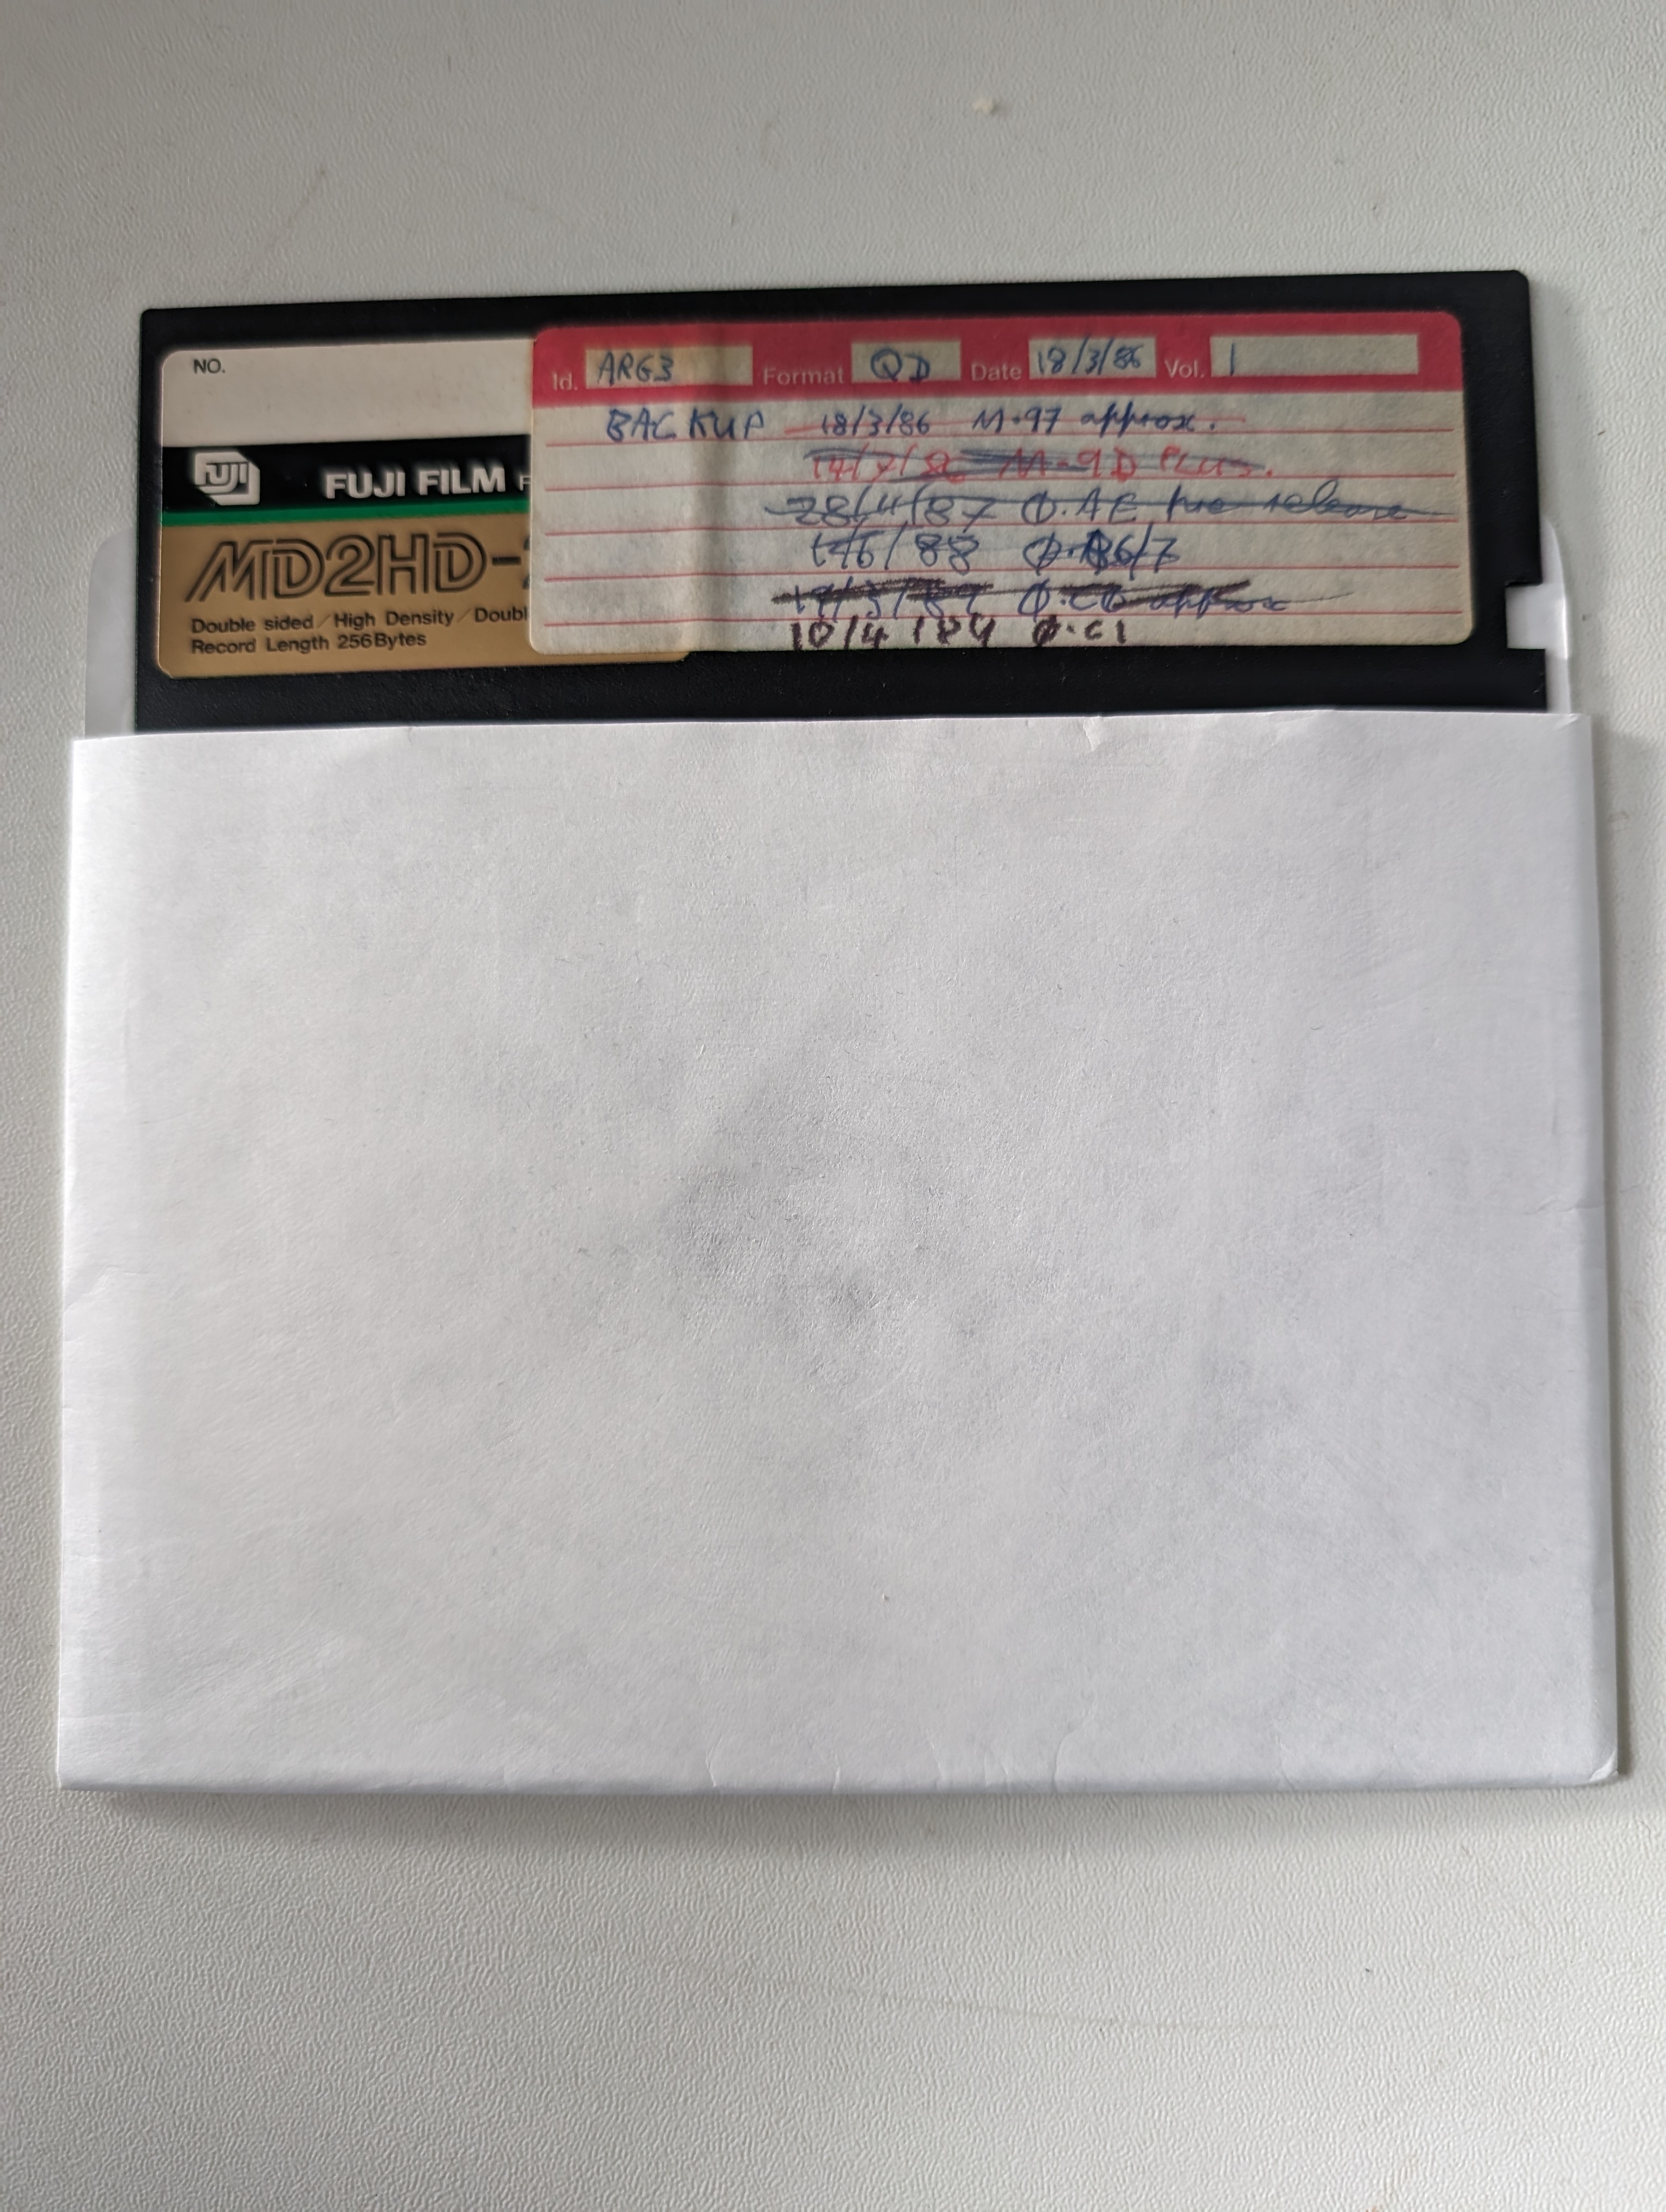 NO.
FUJI
FUJI FILM
MD2HD-
Double sided/High Density/Doubl
Record Length 256Bytes
Id. ARG3 Format QD Date 18/3/86 Vol. 1
BACKUP 18/3/86 M.97 approx.
14/7/86 M.9D PLUS.
28/4/87 Ø.AE pre release
88
approx
10/4/89 Ø.C1